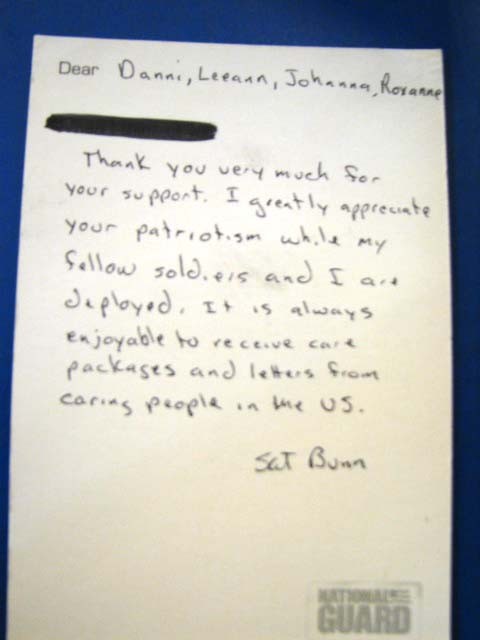 Dear Danni, Leeann, Johanna, Roxanne
Thank you very much for
your support. I greatly appreciate
your patriotism while my
fellow soldiers and I are
deployed. It is always
enjoyable to receive care
packages and letters from
caring people in the US.
SGT Bunn
NATIONAL
GUARD